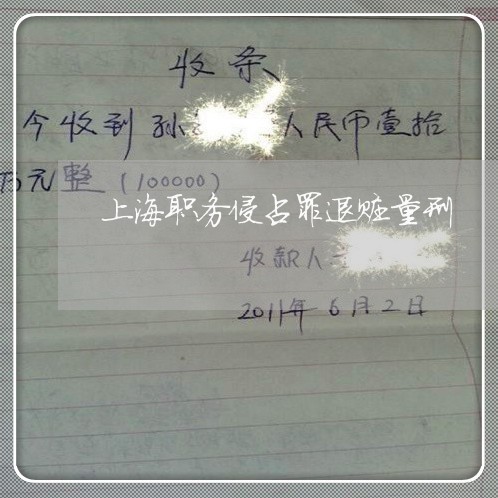 收条
今收到孙 人民币壹拾
万元整（100000）
上海职务侵占罪退赃量刑
收款人
2011年6月2日